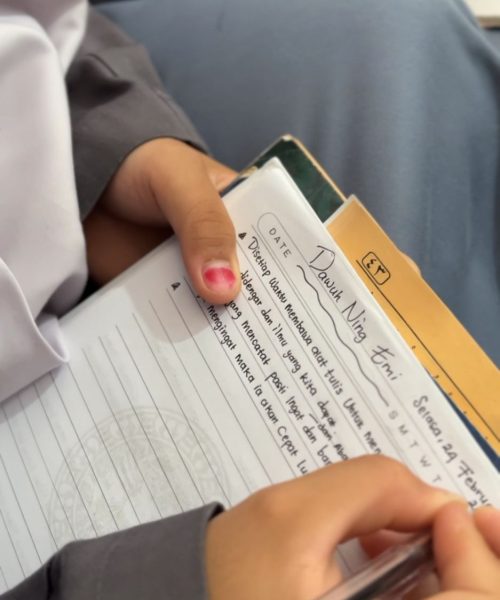 DATE
Dawuh Ning Emi
S M T W T
Selasa, 24 Febru
▲ Disetiap Waktu membawa alat tulis Untuk men
didengar dan ilmu yang kita dapat
yang mencatat pasti Ingat dan bar
mengingat maka ia akan Cepat lu
٤٣